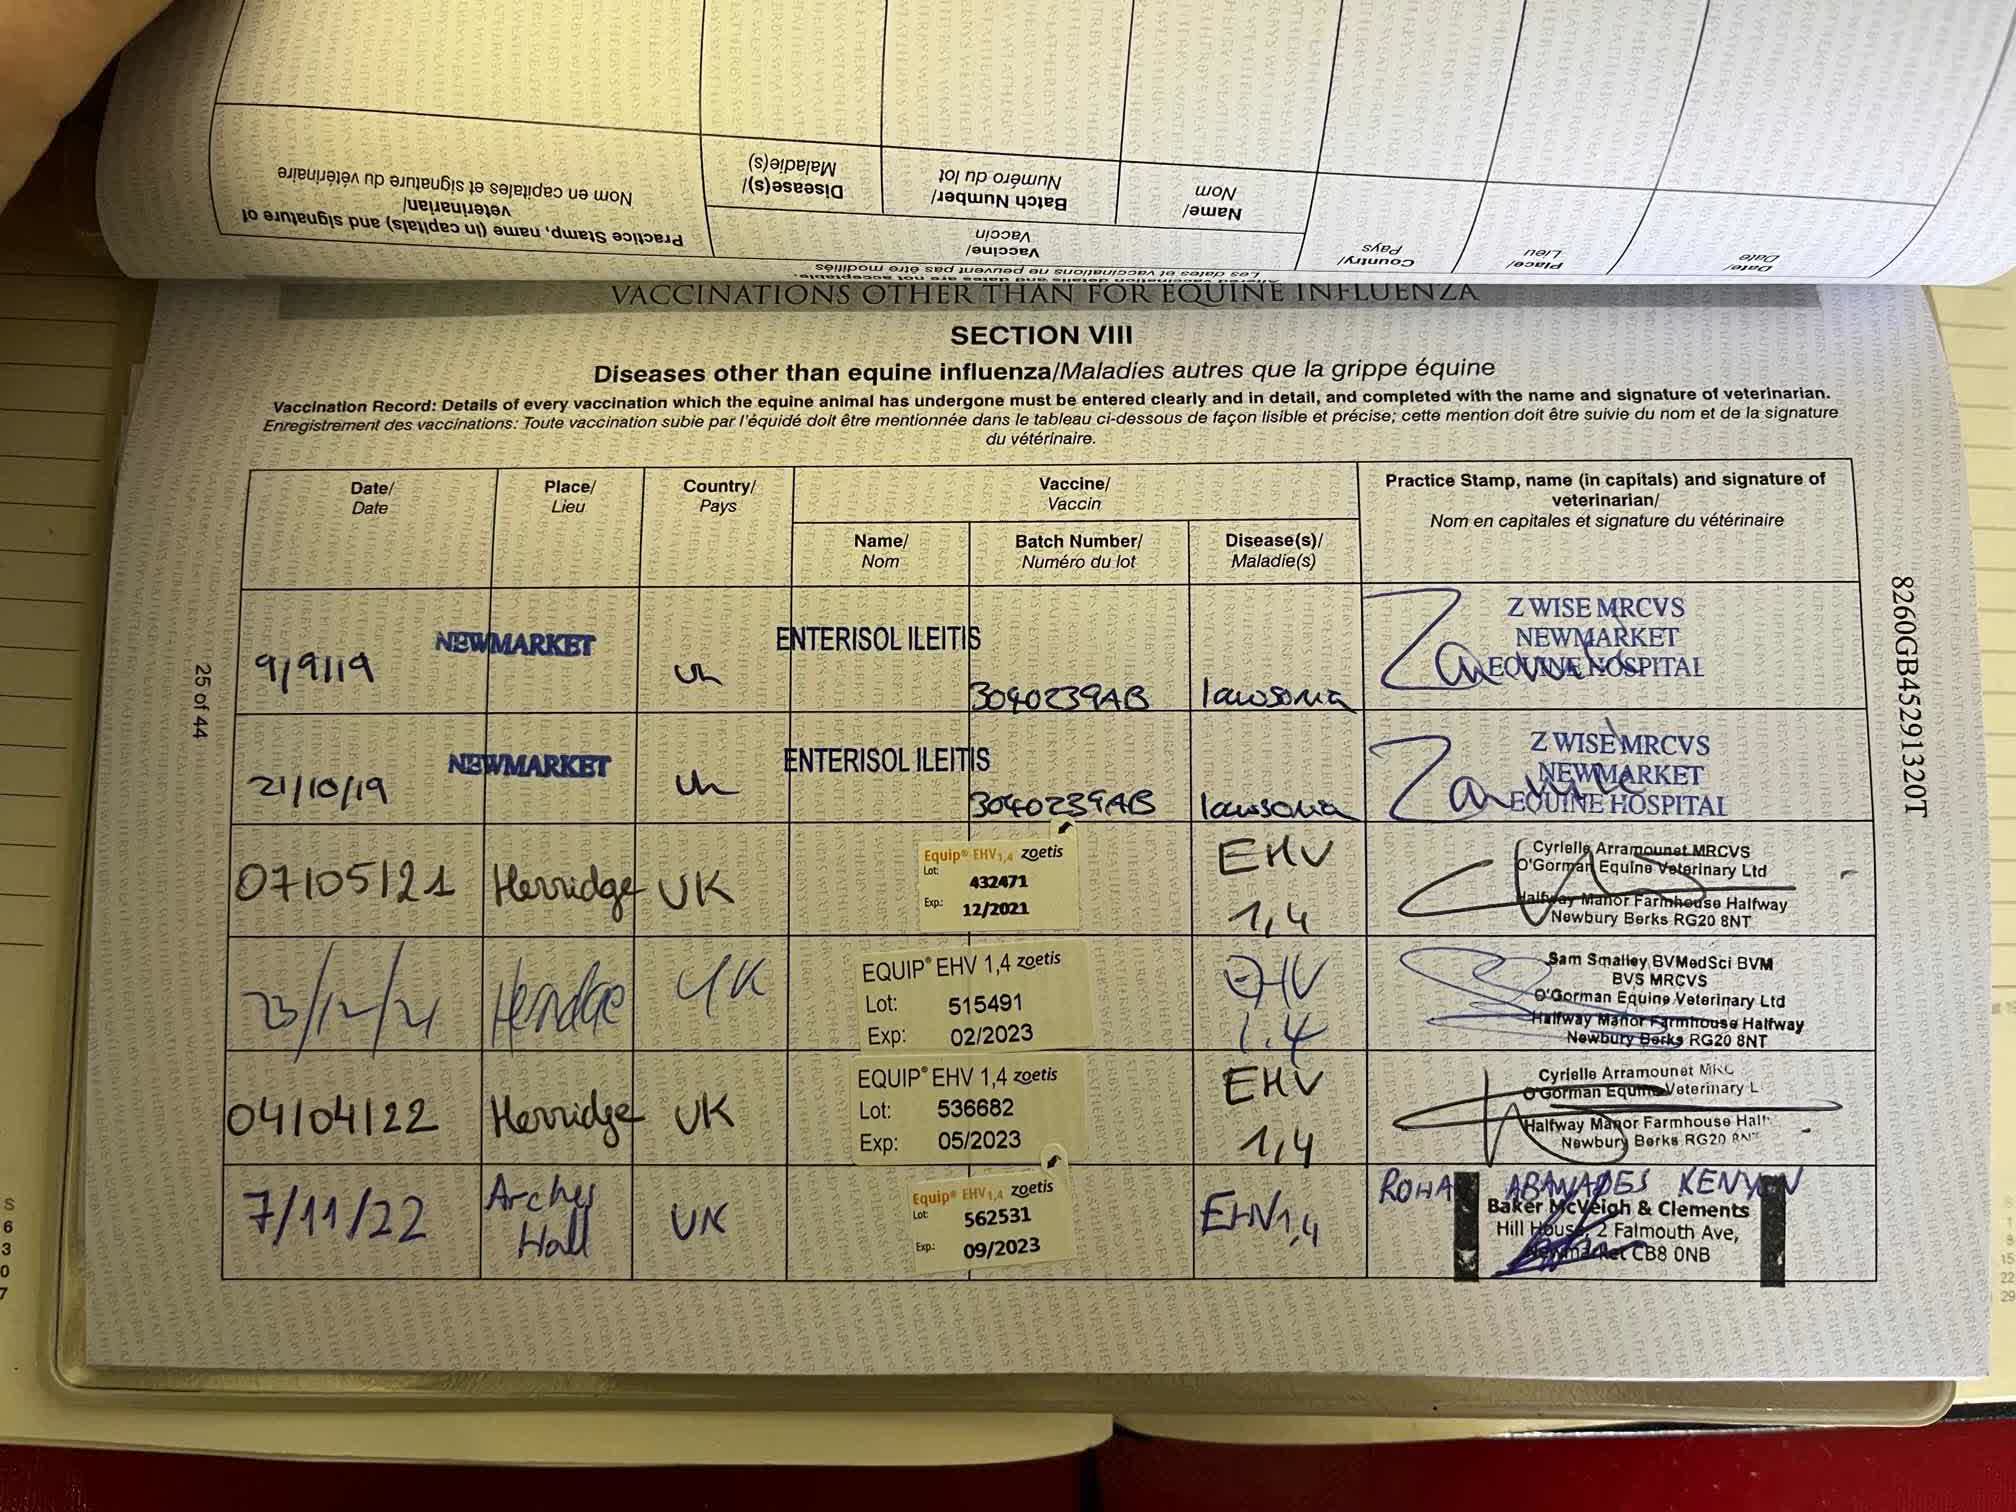 Practice Stamp, name (in capitals) and signature of
veterinarian/
Nom en capitales et signature du vétérinaire
Disease(s)/
Maladie(s)
Batch Number/
Numéro du lot
Name/
Nom
Vaccine/
Vaccin
Country/
Pays
Place/
Lieu
Date/
Date
Les dates et vaccinations ne peuvent pas être modifiés
VACCINATIONS OTHER THAN FOR EQUINE INFLUENZA
SECTION VIII
Diseases other than equine influenza/Maladies autres que la grippe équine
Vaccination Record: Details of every vaccination which the equine animal has undergone must be entered clearly and in detail, and completed with the name and signature of veterinarian.
Enregistrement des vaccinations: Toute vaccination subie par l'équidé doit être mentionnée dans le tableau ci-dessous de façon lisible et précise; cette mention doit être suivie du nom et de la signature
du vétérinaire.
Date/
Date
Place/
Lieu
Country/
Pays
Vaccine/
Vaccin
Name/
Nom
Batch Number/
Numéro du lot
Disease(s)/
Maladie(s)
Practice Stamp, name (in capitals) and signature of
veterinarian/
Nom en capitales et signature du vétérinaire
9/9/19
NEWMARKET
UK
ENTERISOL ILEITIS
3040239AB
lawsonia
Z WISE MRCVS
NEWMARKET
EQUINE HOSPITAL
21/10/19
NEWMARKET
UK
ENTERISOL ILEITIS
3040239AB
lawsonia
Z WISE MRCVS
NEWMARKET
EQUINE HOSPITAL
07/05/21
Herridge
UK
Equip® EHV1,4 zoetis
Lot: 432471
Exp: 12/2021
EHV
1,4
Cyrielle Arramounet MRCVS
O'Gorman Equine Veterinary Ltd
Halfway Manor Farmhouse Halfway
Newbury Berks RG20 8NT
23/12/21
Herridge
UK
EQUIP® EHV 1,4 zoetis
Lot: 515491
Exp: 02/2023
EHV
1.4
Sam Smalley BVMedSci BVM
BVS MRCVS
O'Gorman Equine Veterinary Ltd
Halfway Manor Farmhouse Halfway
Newbury Berks RG20 8NT
04/04/22
Herridge
UK
EQUIP® EHV 1,4 zoetis
Lot: 536682
Exp: 05/2023
EHV
1,4
Cyrielle Arramounet MRC
O'Gorman Equine Veterinary L
Halfway Manor Farmhouse Half
Newbury Berks RG20 8NT
7/11/22
Archer
Hall
UK
Equip® EHV1,4 zoetis
Lot: 562531
Exp.: 09/2023
EHV1,4
ABANADES KENYON
Baker McVeigh & Clements
Hill House, 2 Falmouth Ave,
Newmarket CB8 0NB
25 of 44
8260GB45291320T